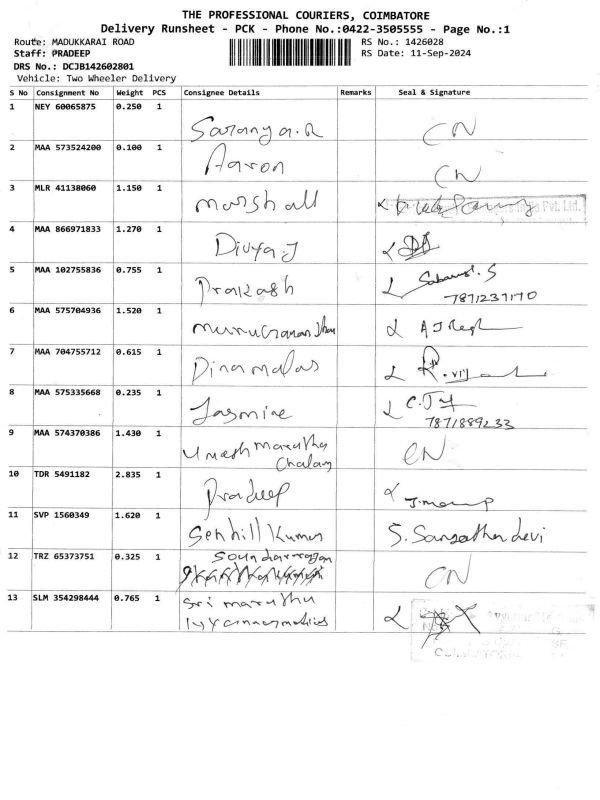 THE PROFESSIONAL COURIERS, COIMBATORE
Delivery Runsheet - PCK - Phone No.:0422-3505555 - Page No.:1
Route: MADUKKARAI ROAD
RS No.: 1426028
Staff: PRADEEP
RS Date: 11-Sep-2024
DRS No.: DCJB142602801
Vehicle: Two Wheeler Delivery
S No Consignment No Weight PCS Consignee Details Remarks Seal & Signature
1 NEY 60065875 0.250 1
Saranya.R CN
2 MAA 573524200 0.100 1
Aaron CN
3 MLR 41138060 1.150 1
marshall Pvt. Ltd.
4 MAA 866971833 1.270 1
Divya.J
5 MAA 102755836 0.755 1
Prakash
7871239170
6 MAA 575704936 1.520 1
7 MAA 704755712 0.615 1
Dinamalar
8 MAA 575335668 0.235 1
Jasmine
7871889233
9 MAA 574370386 1.430 1
Umesh marutha CN
Chalam
10 TDR 5491182 2.835 1
Pradeep
11 SVP 1560349 1.620 1
Senhill Kumar S. devi
12 TRZ 65373751 0.325 1
Soundararajan
CN
13 SLM 354298444 0.765 1
Sri maruthu